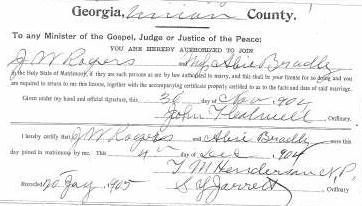 Georgia, Union County.
To any Minister of the Gospel, Judge or Justice of the Peace:
YOU ARE HEREBY AUTHORIZED TO JOIN
J W Rogers and Miss Abie Bradly
in the Holy State of Matrimony, if they are such persons as are by law authorized to marry, and this shall be your license for so doing and you
are required to return to me this license, together with the accompanying certificate properly certified to as to the facts and date of said marriage.
Given under my hand and official signature, this 30 day of Nov 1904
John Ordinary.
I hereby certify that J W Rogers and Abie Bradly were this
day joined in matrimony by me. This 4th day of Dec 1904
T M Henderson N, P,
Recorded 20 Jay 1905 S Y Jarrett Ordinary